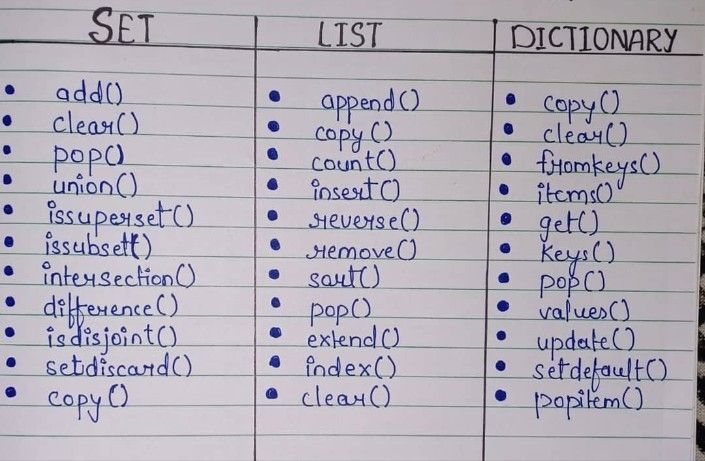 SET
add()
clear()
pop()
union()
issuperset()
issubset()
intersection()
difference()
isdisjoint()
setdiscard()
copy()
LIST
append()
copy()
count()
insert()
reverse()
remove()
sort()
pop()
extend()
index()
clear()
DICTIONARY
copy()
clear()
fromkeys()
items()
get()
keys()
pop()
values()
update()
setdefault()
popitem()